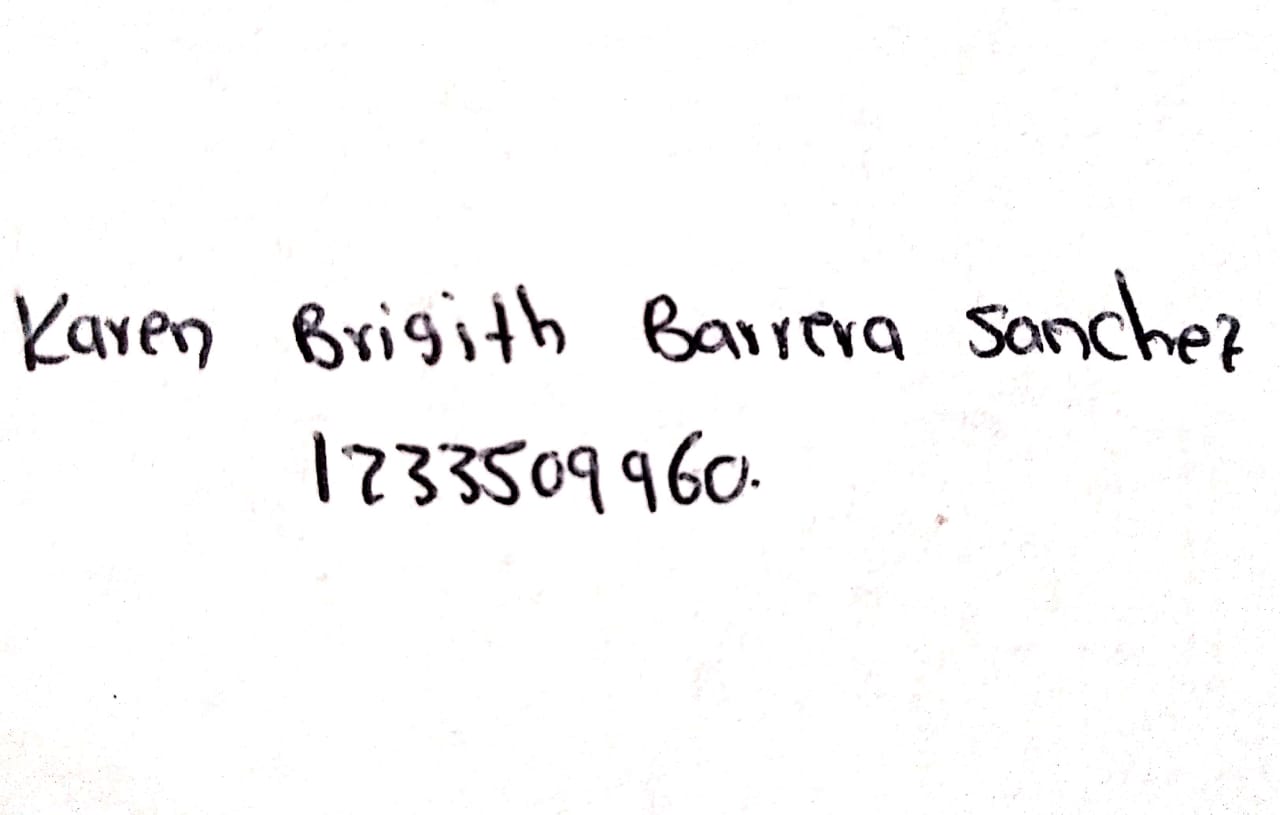 Karen Brigith Barrera Sanchez
1233509960.